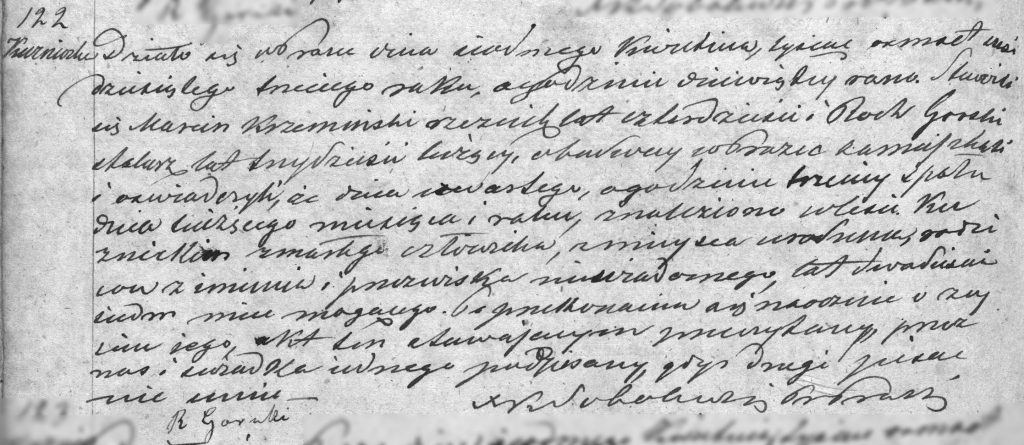 122
Kuźniczka Działo się w Braru dnia siódmego Kwietnia, tysiąc osmset sześć
dziesiątego trzeciego roku, o godzinie dziewiątey rano. Stawili
się Marcin Krzemiński rzeznik lat czterdzieści i Roch Gorski
stolarz lat trzydzieści liczący, obadway w Brarze zamieszkali
i oświadczyli, że dnia czwartego, o godzinie trzeciey z połu
dnia bieżącego miesiąca i roku, znaleziono w lesie Ku
znickim zmarłego człowieka, z mieysca urodzenia, rodzi
ców z imienia i nazwiska niewiadomego, lat dwadzieścia
siedm mieć mogącego. Po przekonaniu się naocznie o zey
ściu jego, Akt ten stawającym przeczytany, przez
nas i świadka iednego podpisany, gdyż drugi pisać
nie umie
R Gorski
X R Sobolewski Proboszcz